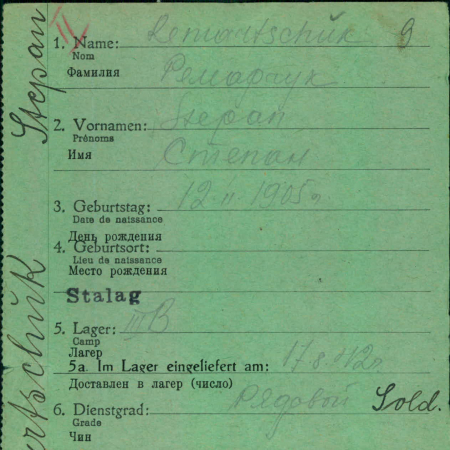 1. Name: Remartschuk 9
Nom
Фамилия Ремарчук
2. Vornamen: Stepan
Prénoms
Имя Степан
3. Geburtstag: 12.II.1905г
Date de naissance
День рождения
4. Geburtsort:
Lieu de naissance
Место рождения
Stalag
5. Lager: III B
Camp
Лагерь
5a. Im Lager eingeliefert am: 17.8.42г
Доставлен в лагер (число)
6. Dienstgrad: Рядовой Sold.
Grade
Чин
Stepan